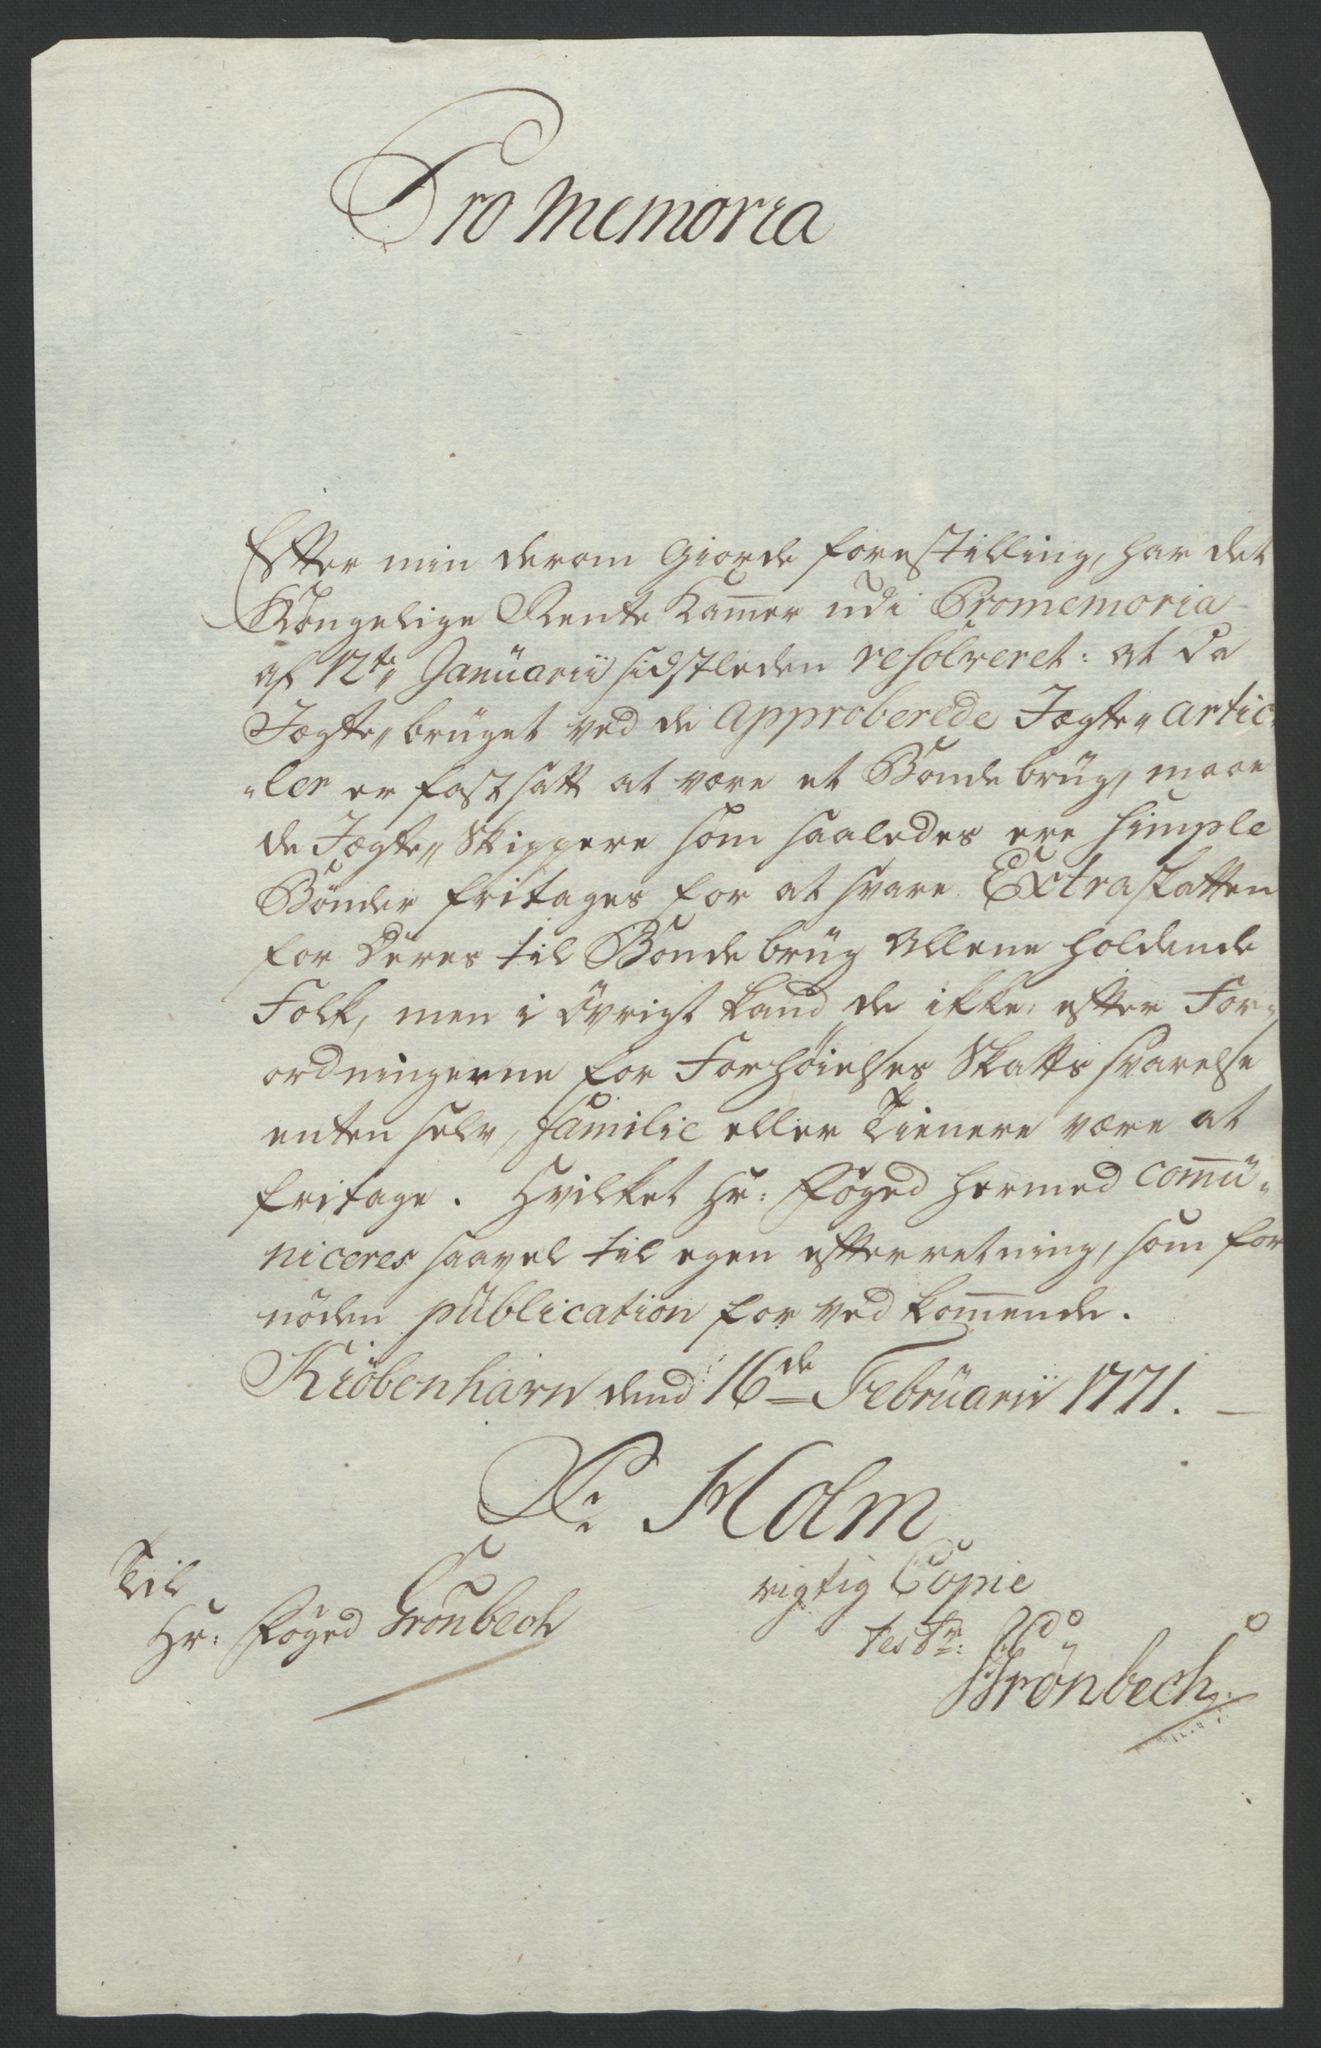 Pro Memoria
Efter min derom giorde forestilling, har det
Kongelige Rente Kam̄er udi Promemoria
af 12te Januarii sidstleden resolveret: at da
Jægte„ brüget ved de approberede Jægte„ artic„
„ler er fastsatt at være et Bondebrüg, maae
de Jægte„ Skippere som saaledes ere simple
Bønder fritages for at svare Extraskatten
for Deres til Bondebrüg allene holdende
Folk, men i øvrigt kand de ikke, efter For„
ordningerne for Forhøielses Skatts svarelse
enten selv, familie eller Tienere være at
fritage. Hvilket Hr: Foged hermed com̄ü„
niceres saavel til egen efterretning, som for
nöden püblication for ved kom̄ende.
Kiöbenhavn dend 16de Februarii 1771.
Holm
Til
Hr: Foged Grönbech
rigtig Copie
test:
Grönbech